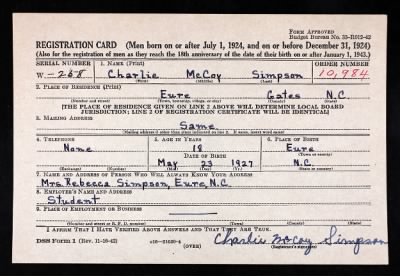 Form Approved
Budget Bureau No. 33-R012-42
REGISTRATION CARD (Men born on or after July 1, 1924, and on or before December 31, 1924)
(Also for the registration of men as they reach the 18th anniversary of the date of their birth on or after January 1, 1943.)
SERIAL NUMBER 1. NAME (Print) ORDER NUMBER
W-258 Charlie McCoy Simpson 10,984
(First) (Middle) (Last)
2. PLACE OF RESIDENCE (Print)
Eure Gates N.C.
(Number and street) (Town, township, village, or city) (County) (State)
[THE PLACE OF RESIDENCE GIVEN ON LINE 2 ABOVE WILL DETERMINE LOCAL BOARD
JURISDICTION; LINE 2 OF REGISTRATION CERTIFICATE WILL BE IDENTICAL]
3. MAILING ADDRESS
Same
(Mailing address if other than place indicated on line 2. If same, insert word same)
4. TELEPHONE 5. AGE IN YEARS 6. PLACE OF BIRTH
None 18 Eure
DATE OF BIRTH (Town or county)
May 23 1927 N.C.
(Exchange) (Number) (Mo.) (Day) (Yr.) (State or country)
7. NAME AND ADDRESS OF PERSON WHO WILL ALWAYS KNOW YOUR ADDRESS
Mrs. Rebecca Simpson, Eure, N.C.
8. EMPLOYER'S NAME AND ADDRESS
Student
9. PLACE OF EMPLOYMENT OR BUSINESS
(Number and street or R. F. D. number) (Town) (County) (State)
I AFFIRM THAT I HAVE VERIFIED ABOVE ANSWERS AND THAT THEY ARE TRUE.
DSS Form 1 (Rev. 11-16-42) (OVER) Charlie McCoy Simpson